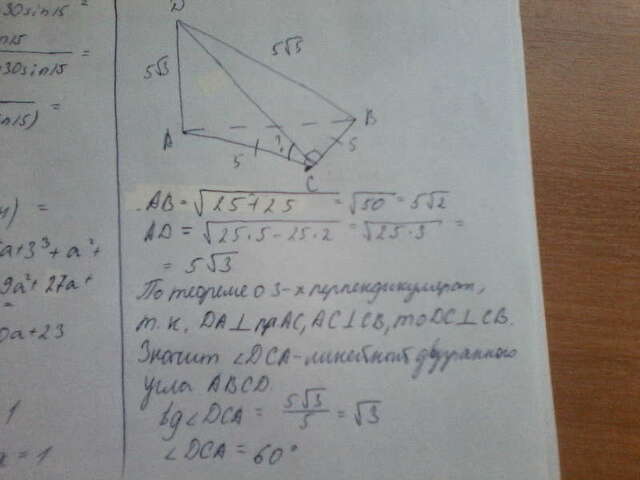 30 sin 15 =
n15
30 sin 15 =
n15) =
) =
a+3³+a²+
9a²+27a+
=
0a+23
1
= 1
D
5√3
5√5
A
B
5
?
5
C
AB = √25+25 = √50 = 5√2
AD = √25·5-25·2 = √25·3 =
= 5√3
По теореме о 3-х перпендикулярах,
т.к. DA⊥пр AC, AC⊥CB, то DC⊥CB.
Значит ∠DCA - линейный двугранного
угла ABCD
tg∠DCA = 5√3/5 = √3
∠DCA = 60°